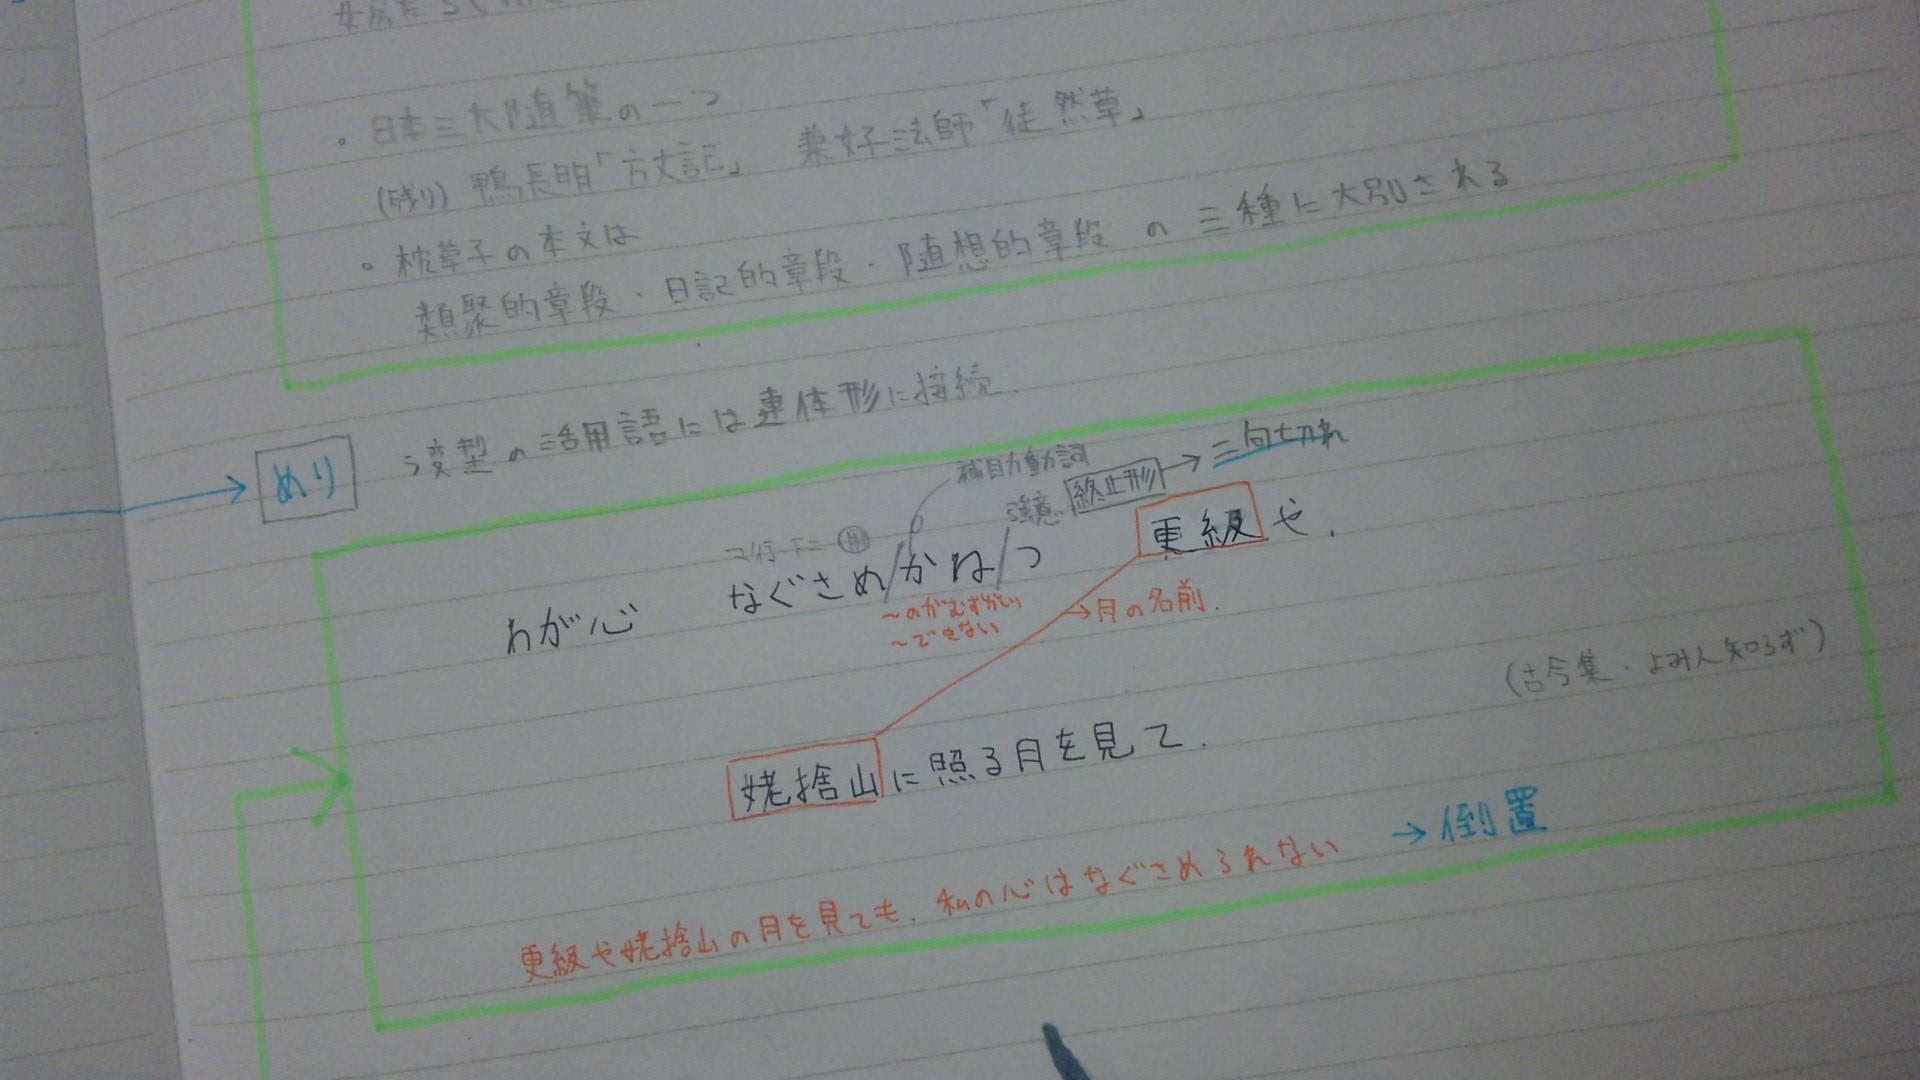 ・日本三大随筆の一つ
(残り) 鴨長明「方丈記」 兼好法師「徒然草」
・枕草子の本文は
類聚的章段・日記的章段・随想的章段の三種に大別される
めり
ラ変型の活用語には連体形に接続.
補助動詞
強意 終止形 → 三句切れ
マ行下二 用
わが心 なぐさめ/かね/つ 更級や.
〜のがむずかしい
〜できない
→月の名前.
(古今集・よみ人知らず)
姥捨山に照る月を見て.
更級や姥捨山の月を見ても.私の心はなぐさめられない → 倒置